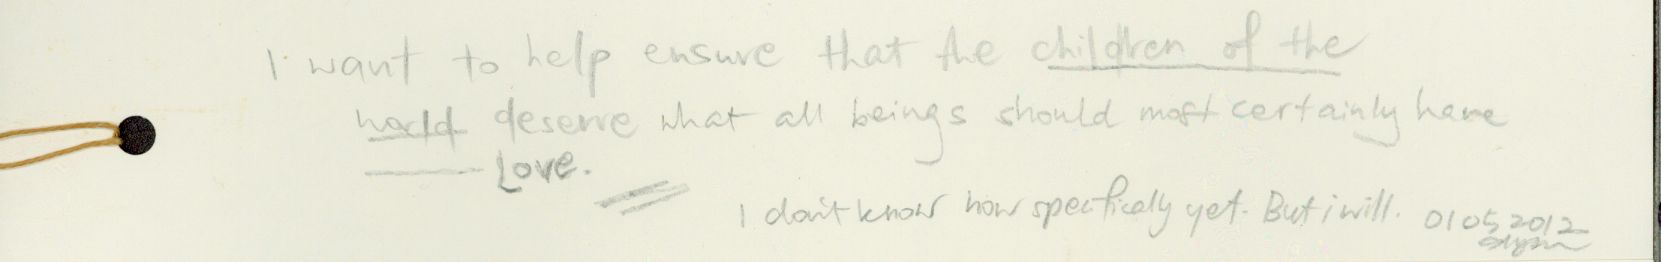 I want to help ensure that the children of the
world deserve what all beings should most certainly have
Love.
I don't know how specifically yet. But i will. 01052012